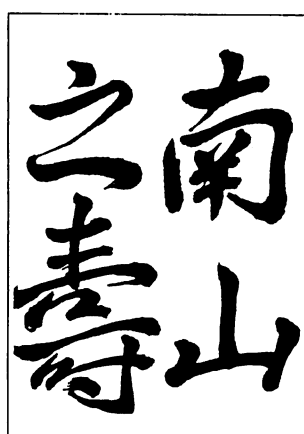 南山
之壽